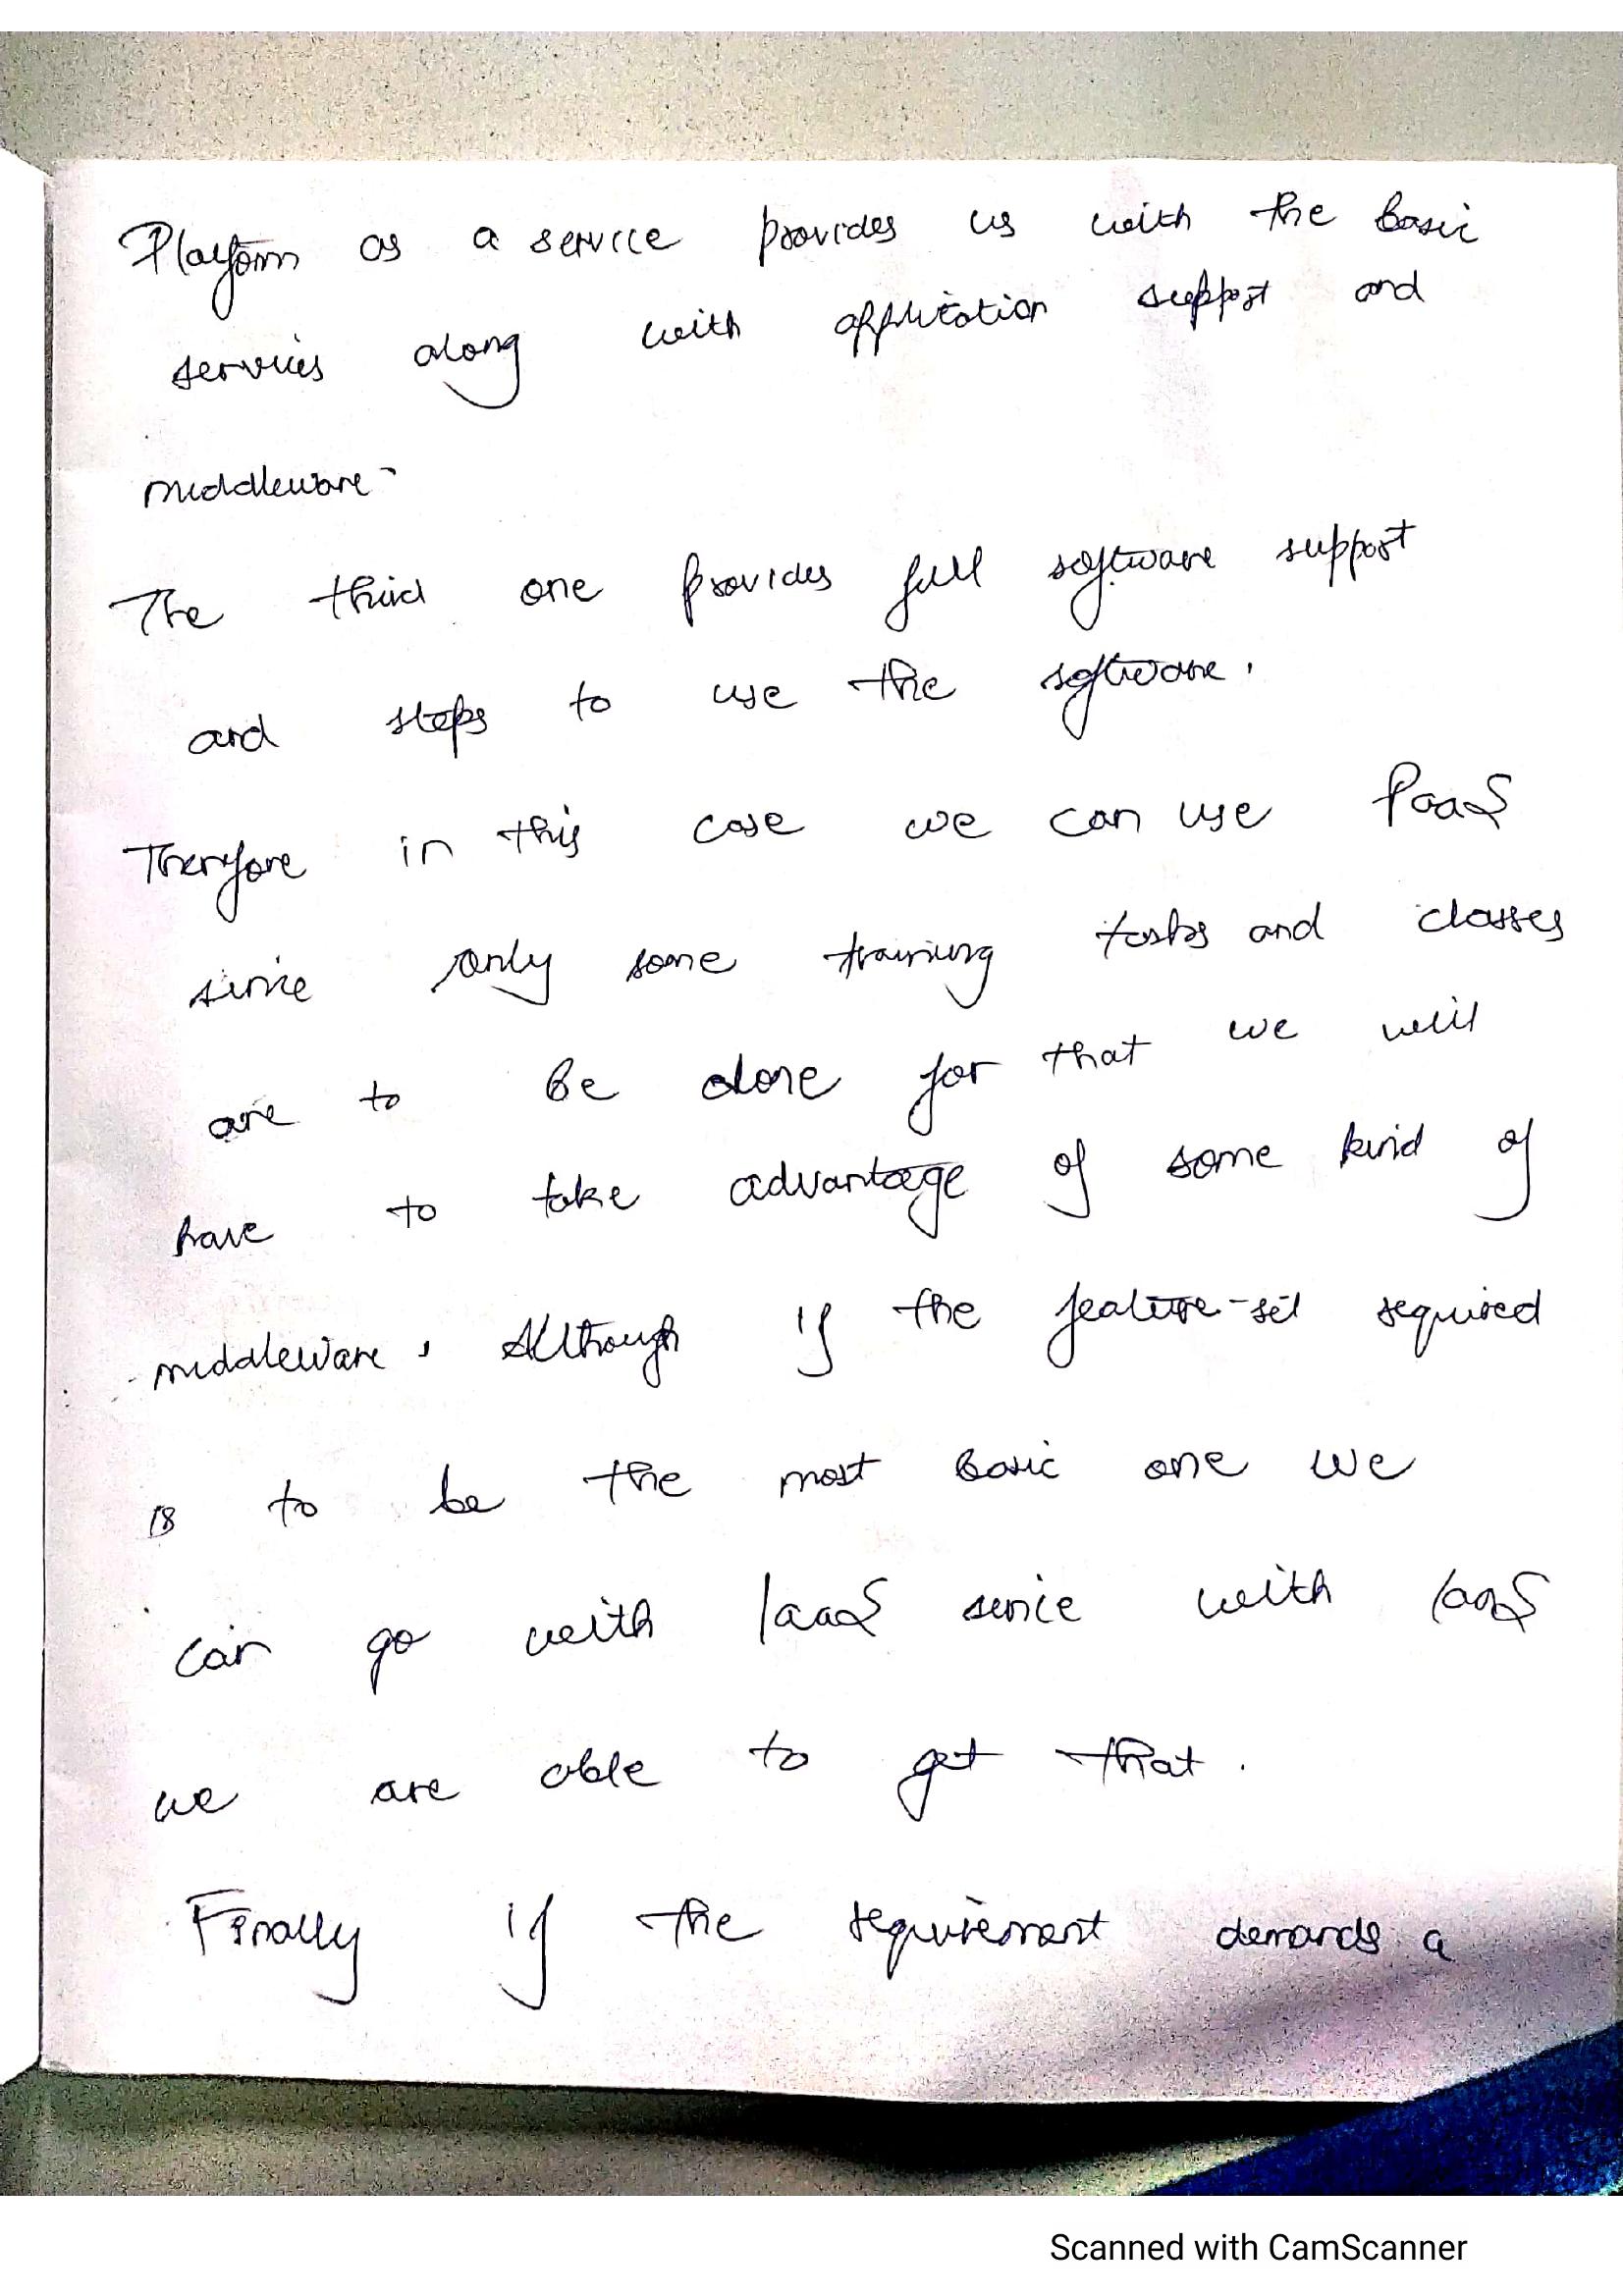 Platform as a service provides us with the basic
services along with application support and
middleware-
The third one provides full software support
and steps to use the software.
Therefore in this case we can use PaaS
since only some training tasks and classes
are to be done for that we will
have to take advantage of some kind of
middleware. Although if the feature-set required
is to be the most basic one we
can go with IaaS since with IaaS
we are able to get that.
Finally if the requirement demands a
Scanned with CamScanner